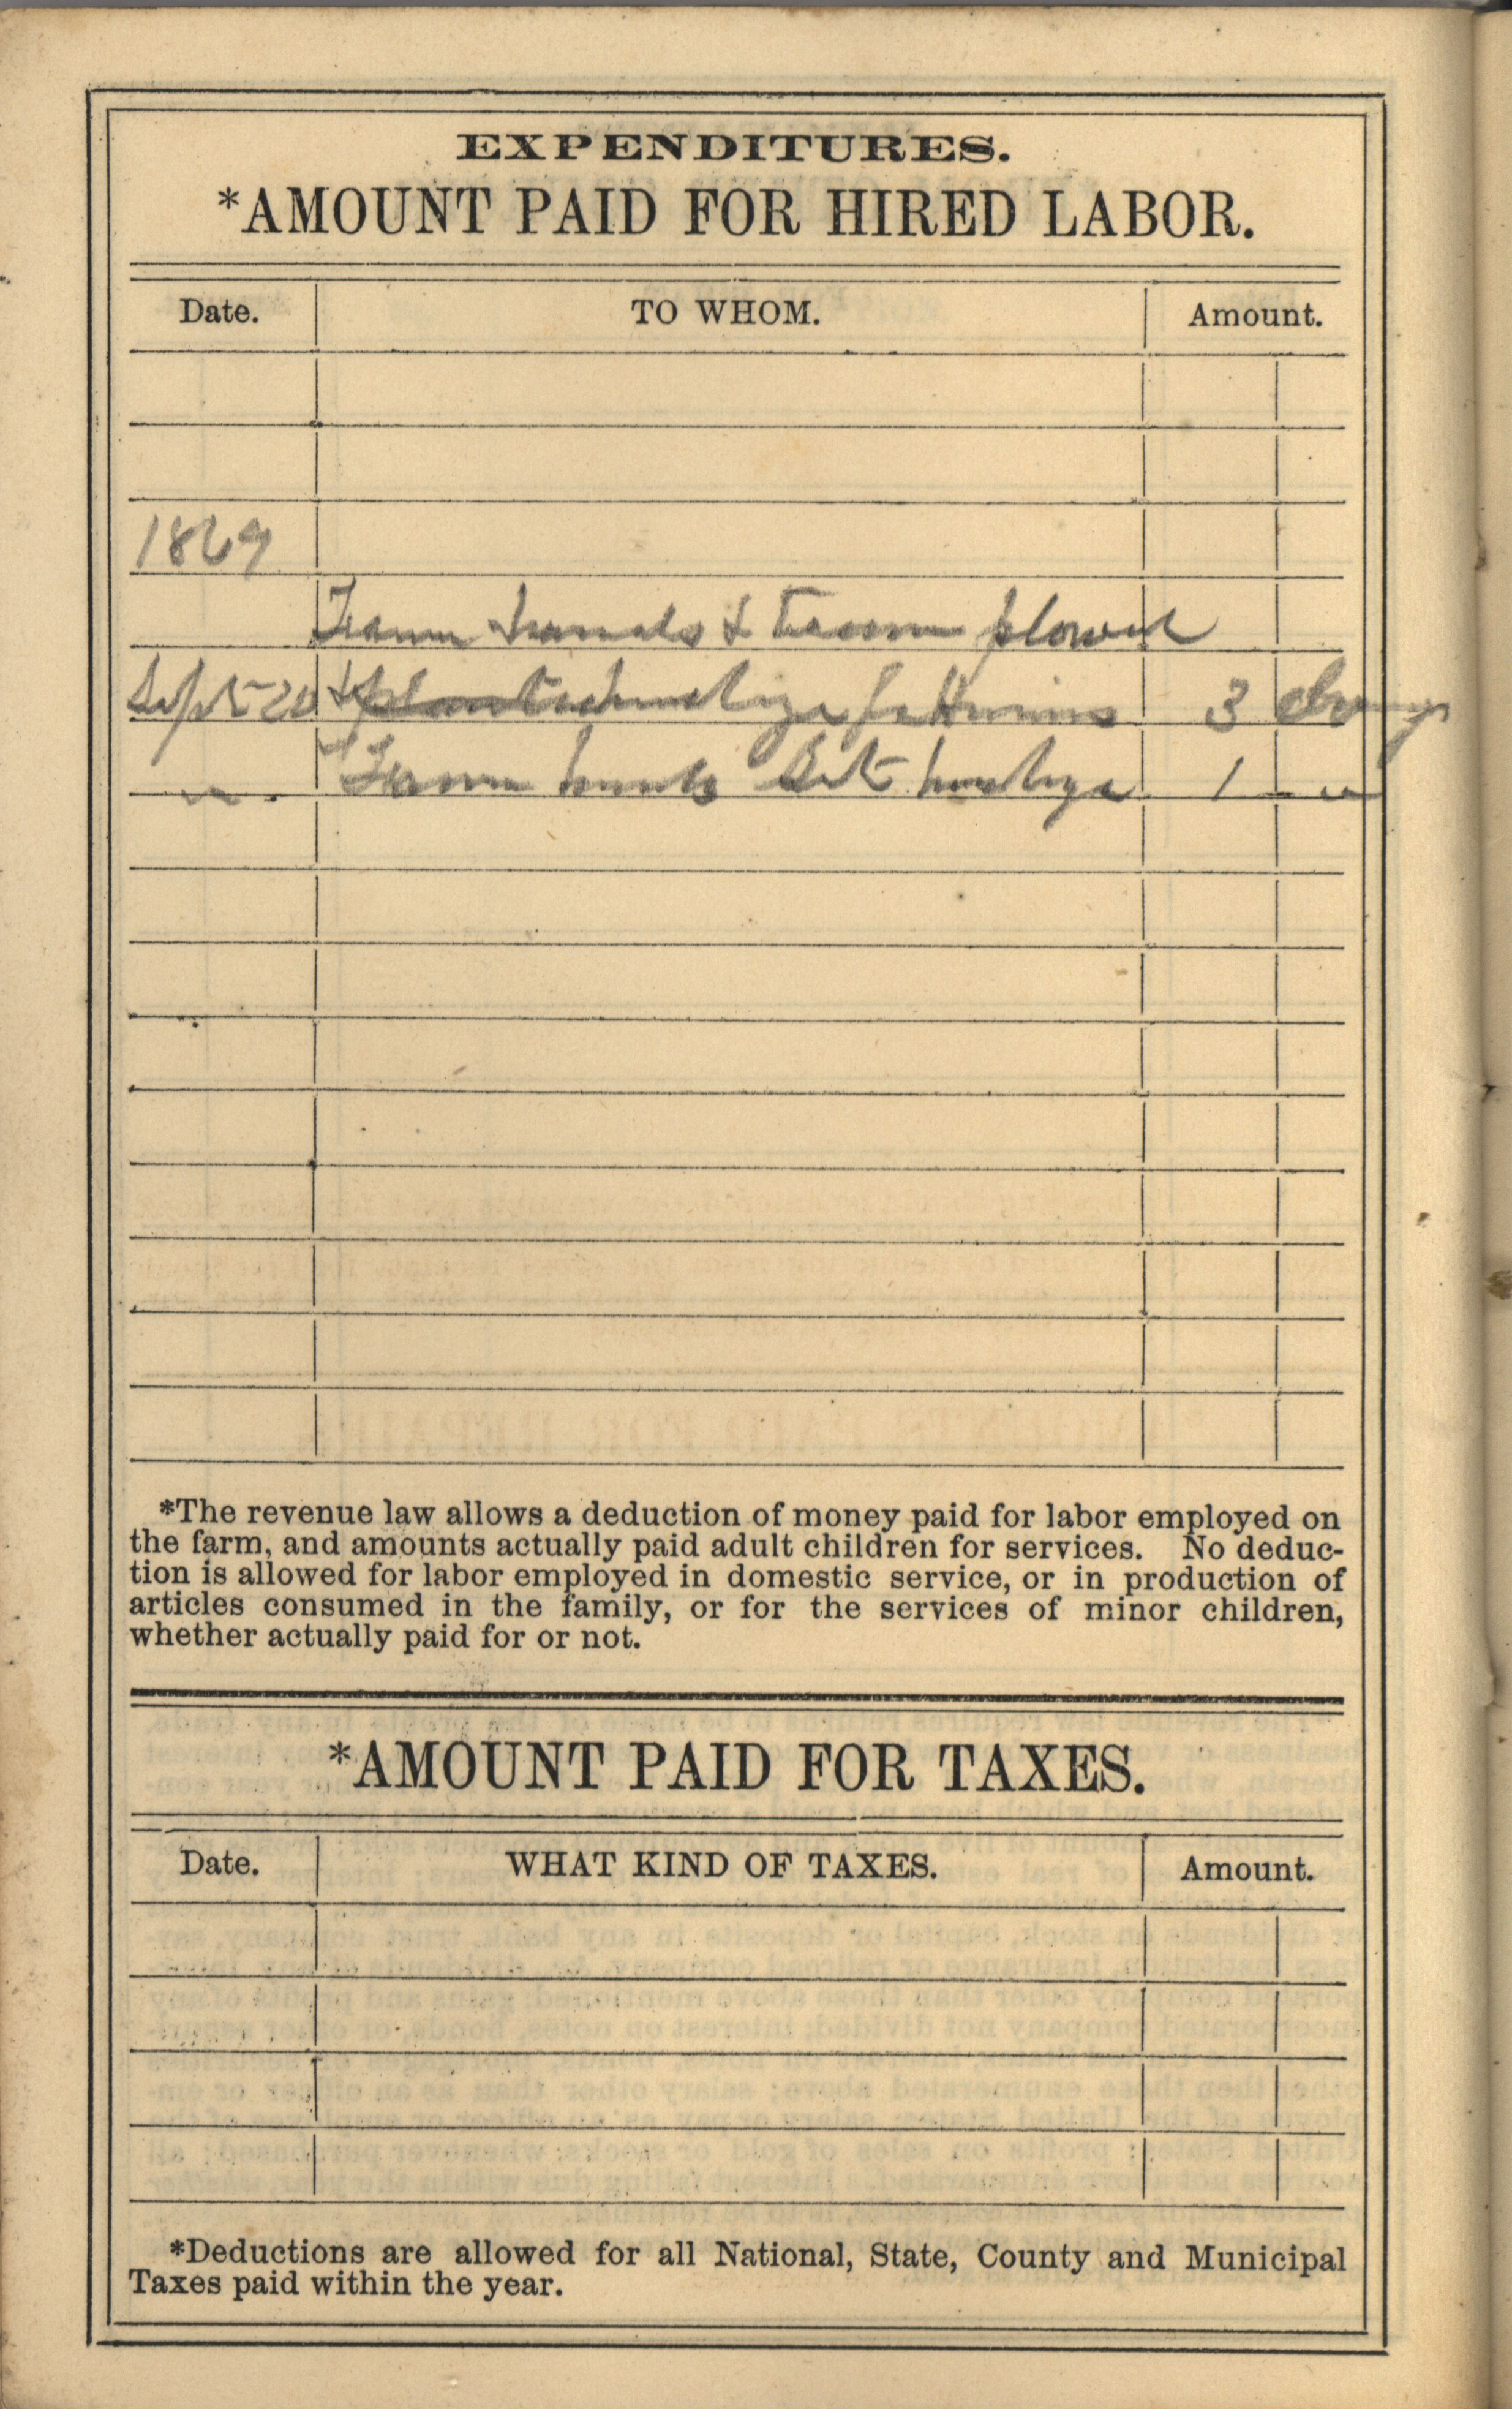 EXPENDITURES.
*AMOUNT PAID FOR HIRED LABOR.
Date. TO WHOM. Amount.
1869
& plowed
Sept 20 & 3 days
" 1 "
*The revenue law allows a deduction of money paid for labor employed on
the farm, and amounts actually paid adult children for services. No deduc-
tion is allowed for labor employed in domestic service, or in production of
articles consumed in the family, or for the services of minor children,
whether actually paid for or not.
*AMOUNT PAID FOR TAXES.
Date. WHAT KIND OF TAXES. Amount.
*Deductions are allowed for all National, State, County and Municipal
Taxes paid within the year.